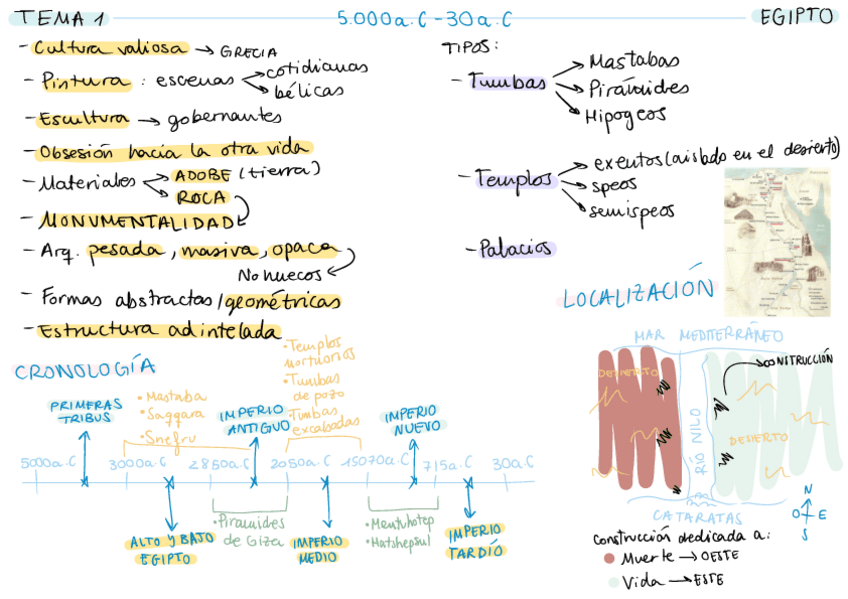 TEMA 1
5.000a.C-30a.C
EGIPTO
- Cultura valiosa → GRECIA
- Pintura : escenas
cotidianas
bélicas
- Escultura → gobernantes
- Obsesión hacia la otra vida
- Materiales
ADOBE (tierra)
ROCA
- MONUMENTALIDAD
- Arq. pesada, masiva, opaca
No huecos
- Formas abstractas/geométricas
- Estructura adintelada
TIPOS:
- Tumbas
Mastabas
Pirámides
Hipogeos
- Templos
exentos (aislado en el desierto)
speos
semispeos
- Palacios
LOCALIZACIÓN
MAR MEDITERRÁNEO
DESIERTO
CONSTRUCCIÓN
RÍO NILO
DESIERTO
CATARATAS
N
O
E
S
Construcción dedicada a:
Muerte → OESTE
Vida → ESTE
CRONOLOGÍA
PRIMERAS TRIBUS
• Mastaba
• Saqqara
• Snefru
IMPERIO ANTIGUO
• Templos mortuorios
• Tumbas de pozo
• Tumbas excabadas
IMPERIO NUEVO
5000a.C
3000a.C
2850a.C
2050a.C
15070a.C
715a.C
30a.C
ALTO Y BAJO EGIPTO
• Piramides de Giza
IMPERIO MEDIO
• Mentuhotep
• Hatshepsut
IMPERIO TARDÍO